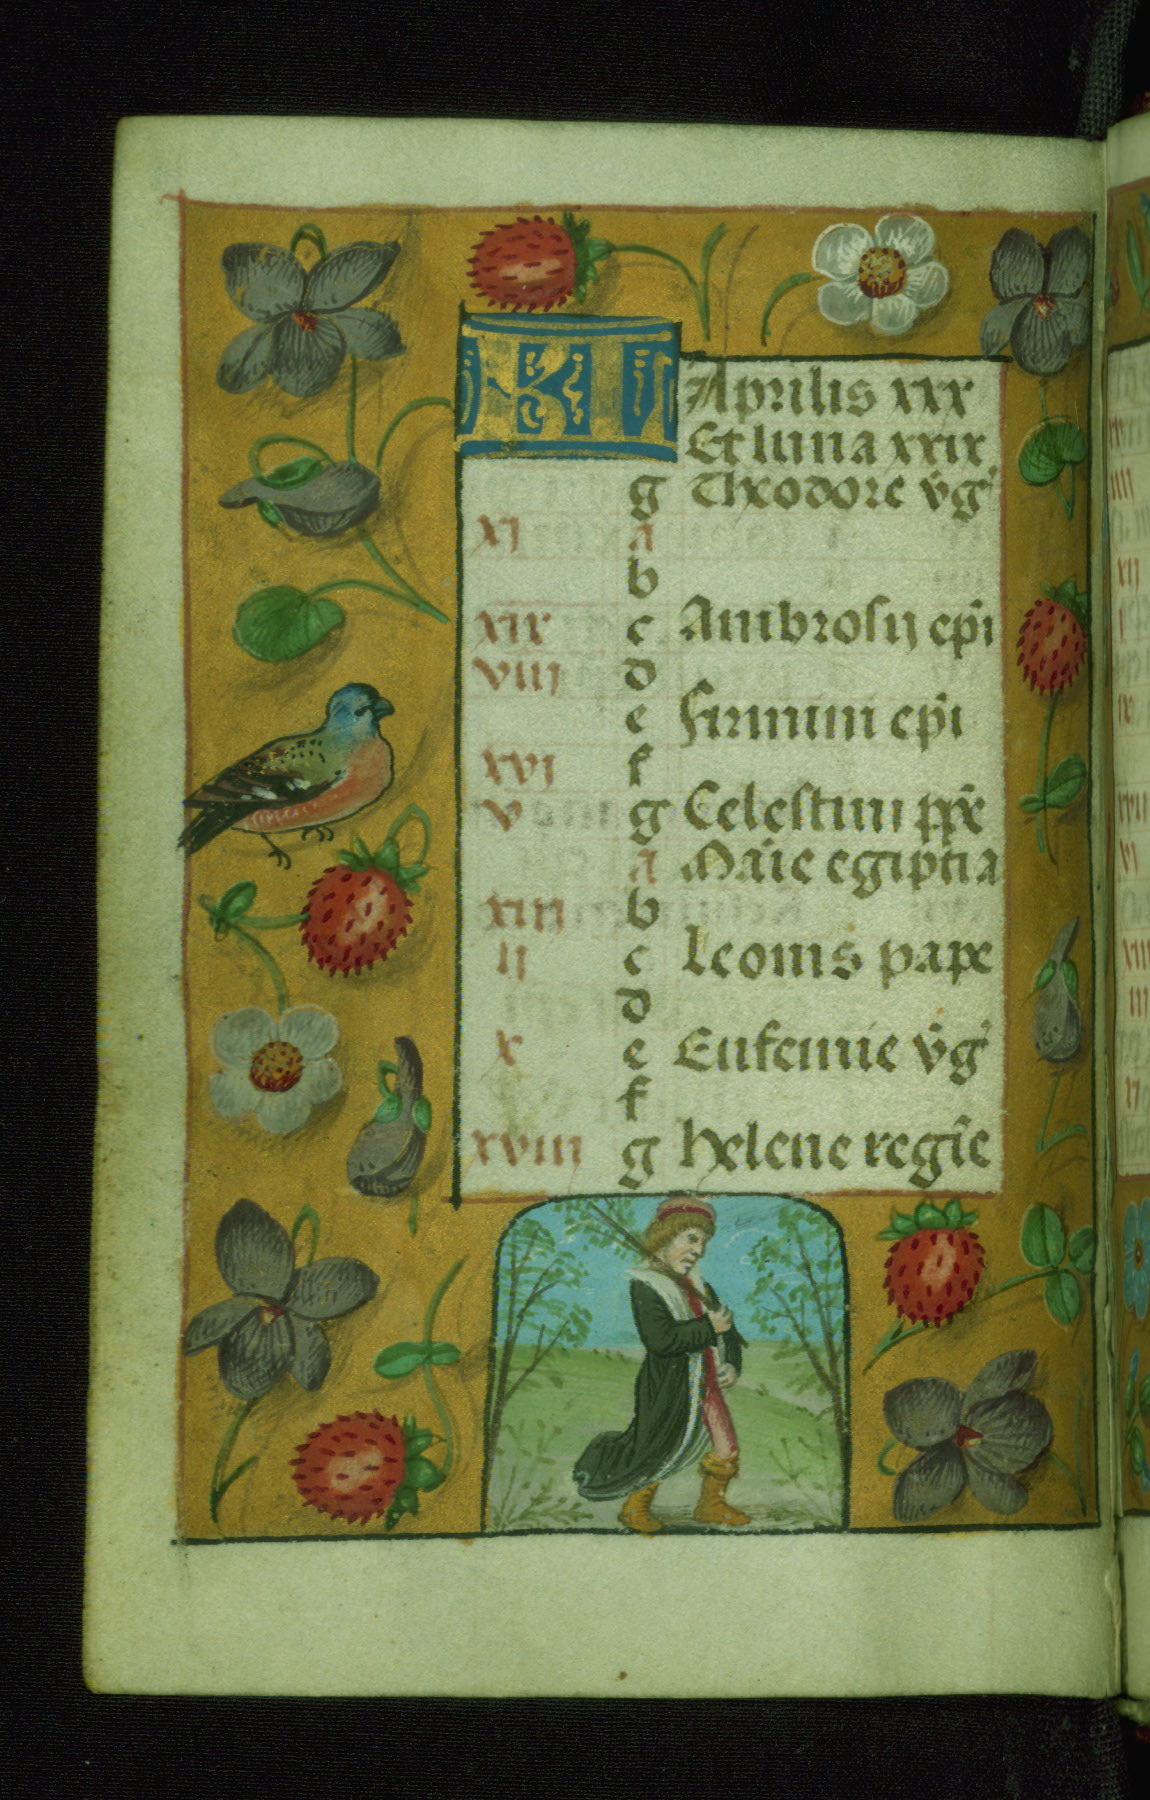 Kl Aprilis xxx
Et luna xxix
g Theodore v̄g
xj a
b
xix c Ambrosij ep̄i
viij d
e firmini ep̄i
xvj f
v g Celestini pp̄e
a Mar̄ie egiptia
xiii b
ij c Leonis pape
d
x e Eufemie v̄g
f
xviii g helene regīe